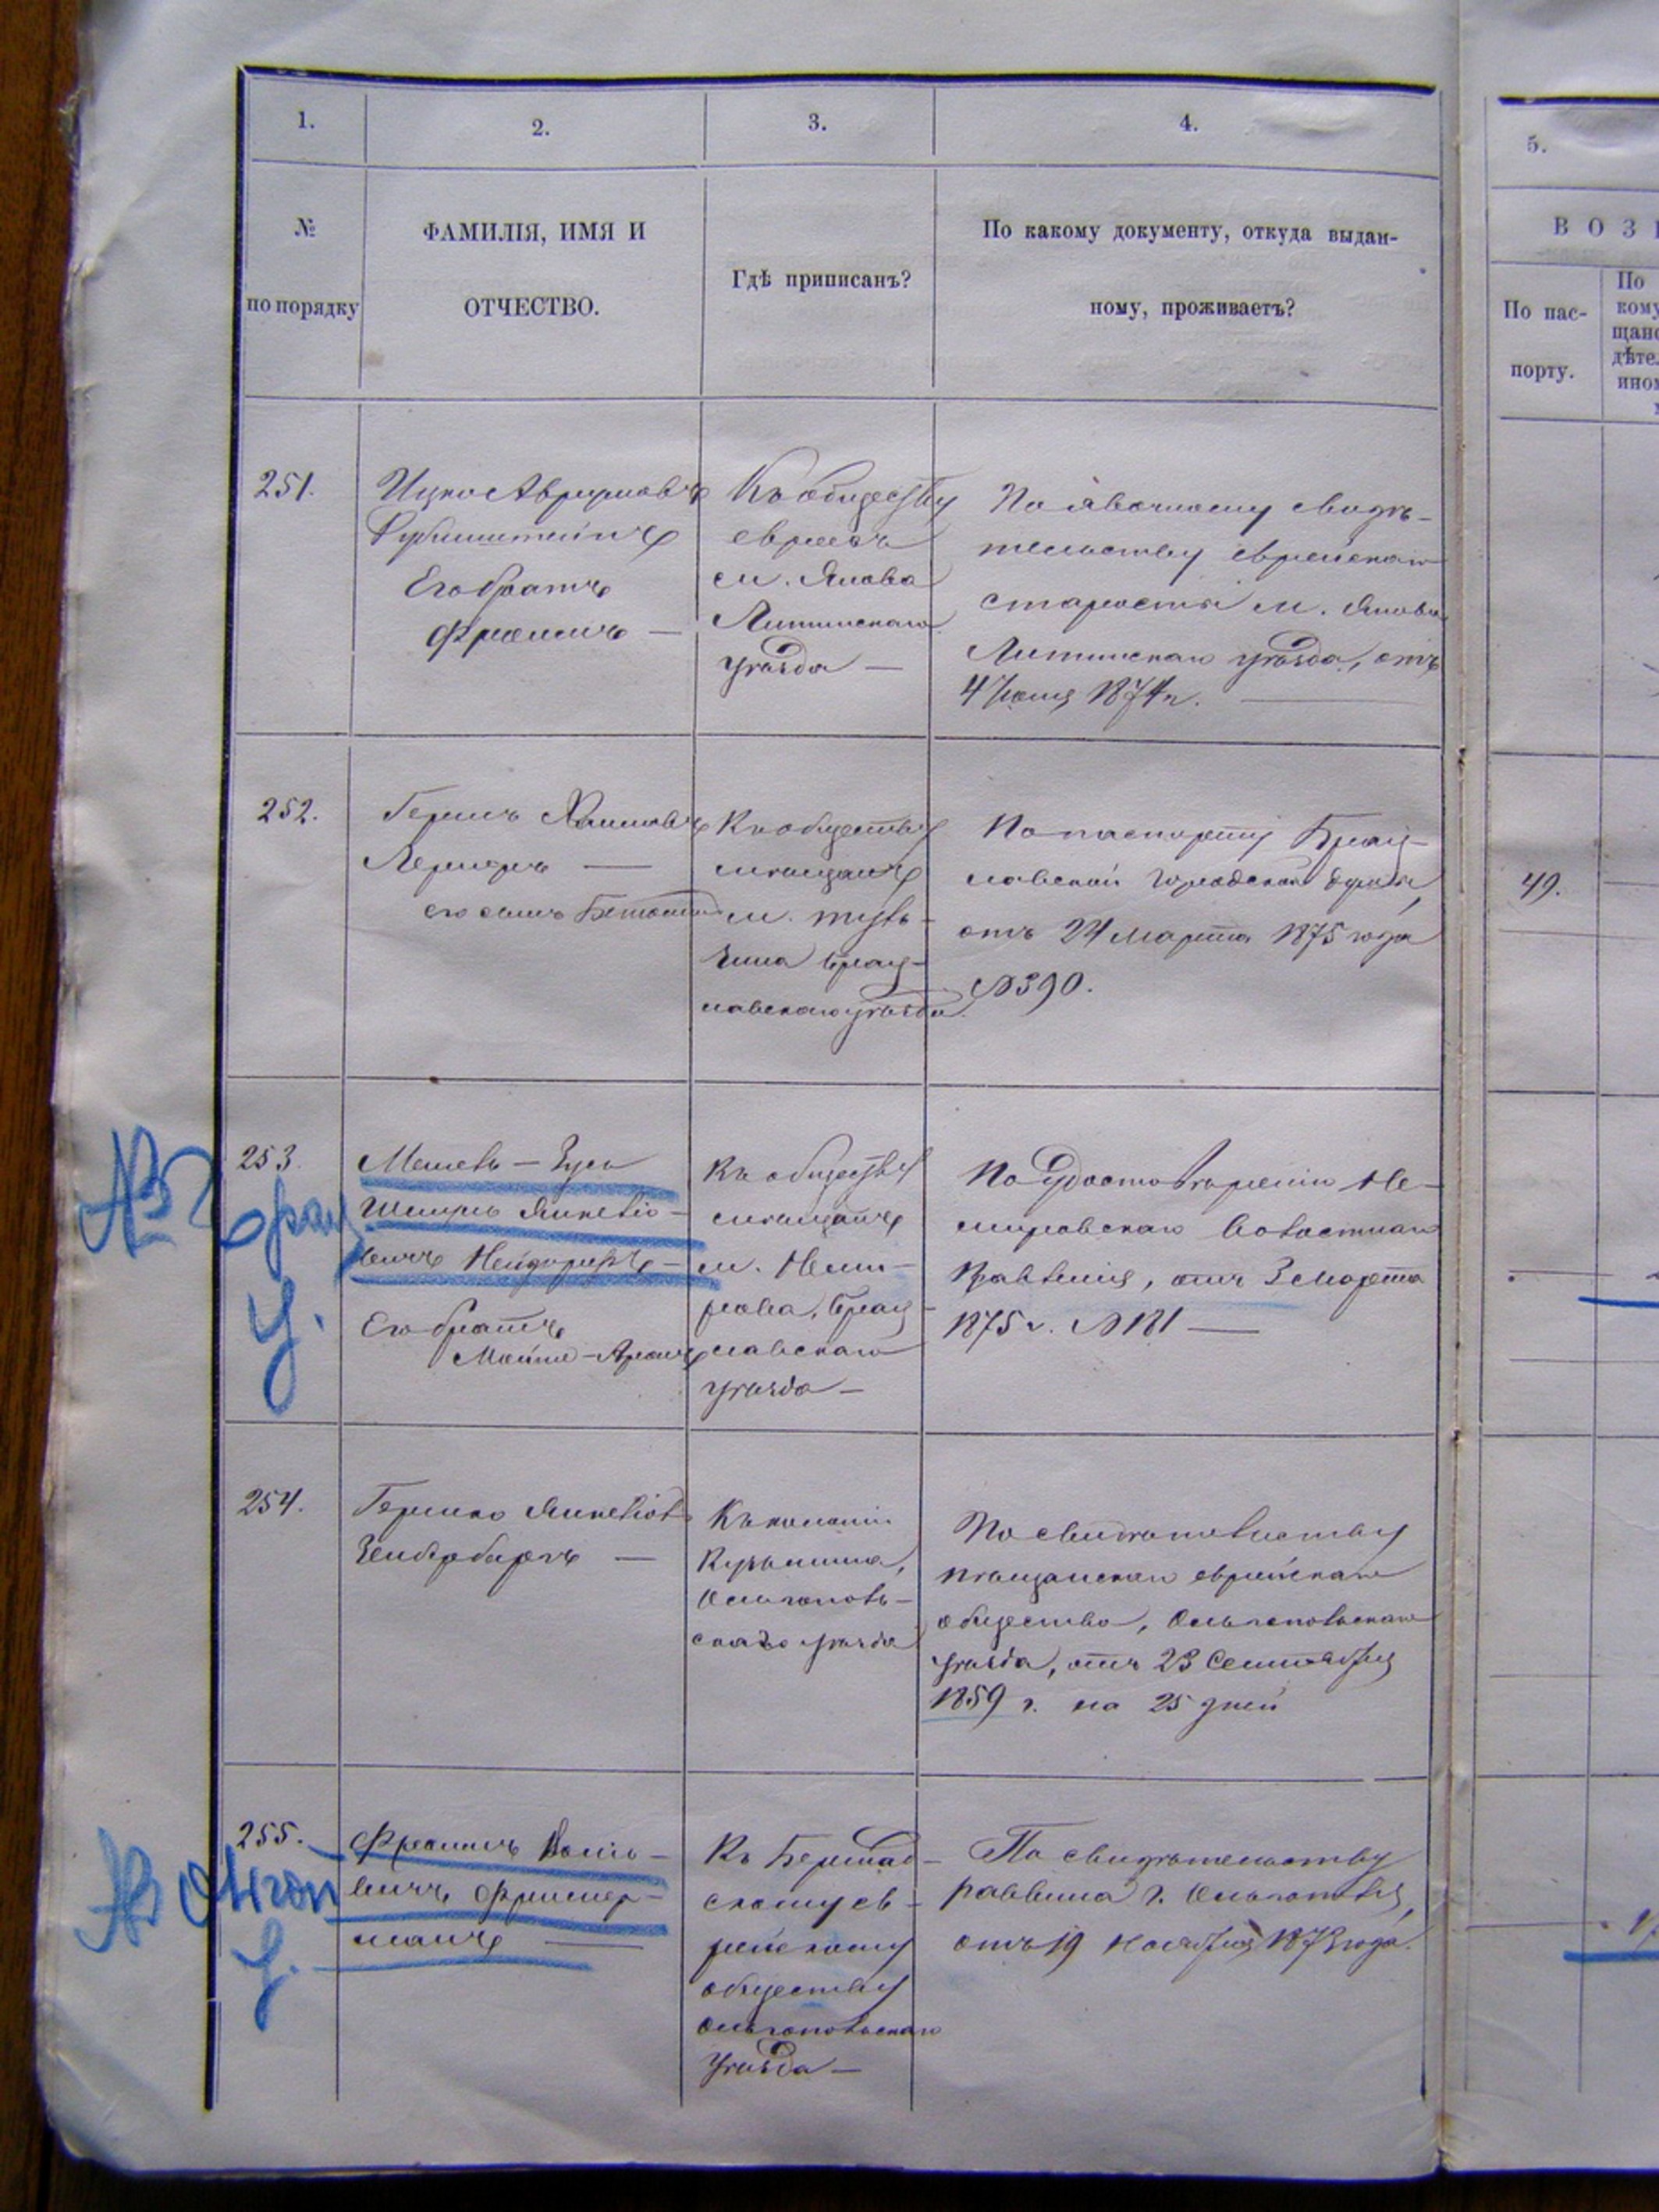 1.
2.
3.
4.
5.
№
по порядку
ФАМИЛІЯ, ИМЯ И
ОТЧЕСТВО.
Гдѣ приписанъ?
По какому документу, откуда выдан-
ному, проживаетъ?
ВОЗ
По пас-
порту.
По
кому
щанс
дѣте
251.
Ицко Аврумовъ
Рубинштейнъ
Его братъ
Фроимъ —
Къ обществу
евреевъ
м. Янова
Литинскаго
уѣзда —
По явочному свидѣ-
тельству еврейскаго
старосты м. Янова
Литинскаго уѣзда, отъ
4 Іюня 1874 г.
252.
Гершъ Хаимовъ
Лернеръ —
его сынъ
Къ обществу
мѣщанъ
м. Туль-
чина Брац-
лавскаго уѣзда.
По паспорту Брац-
лавской городской думы,
отъ 24 Марта 1875 года
№ 390.
49.
253.
Брац
у.
Шмуль Янкеліо-
вичъ
Его братъ
Къ обществу
мѣщанъ
м. Неми-
рова, Брац-
лавскаго
уѣзда —
По удостовѣренію Не-
мировскаго Волостнаго
Правленія, отъ 3 Марта
1875 г. № 181 —
254.
Гершко Янкеліовъ
Зильберберъ —
Къ колоніи
Ольгополь-
скаго уѣзда
По свидѣтельству
мѣщанскаго еврейскаго
общества, Ольгопольскаго
уѣзда, отъ 23 Сентября
1859 г. на 25 дней
255.
Ольгоп
у.
Фроимъ
вичъ Фришер-
манъ —
Къ Бершад-
скому ев-
рейскому
обществу
Ольгопольскаго
уѣзда —
По свидѣтельству
раввина г. Ольгополя,
отъ 19 Ноября 1873 года.